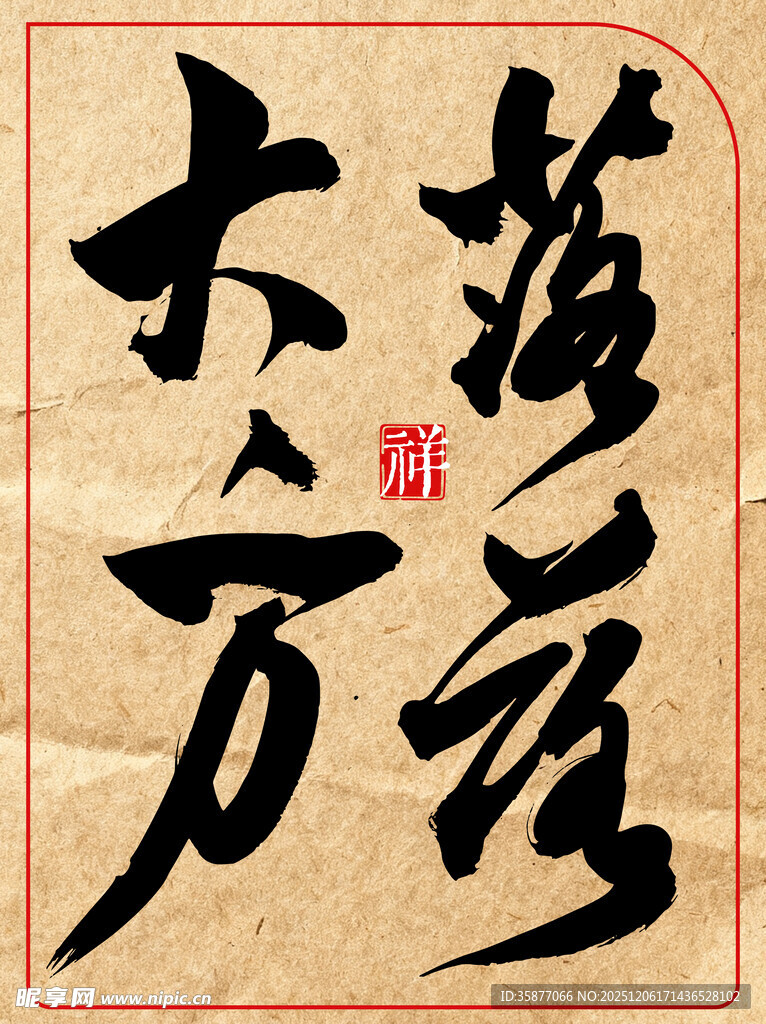 落落
大方
祥
昵享网 www.nipic.cn
ID:35877066 NO:20251206171436528102